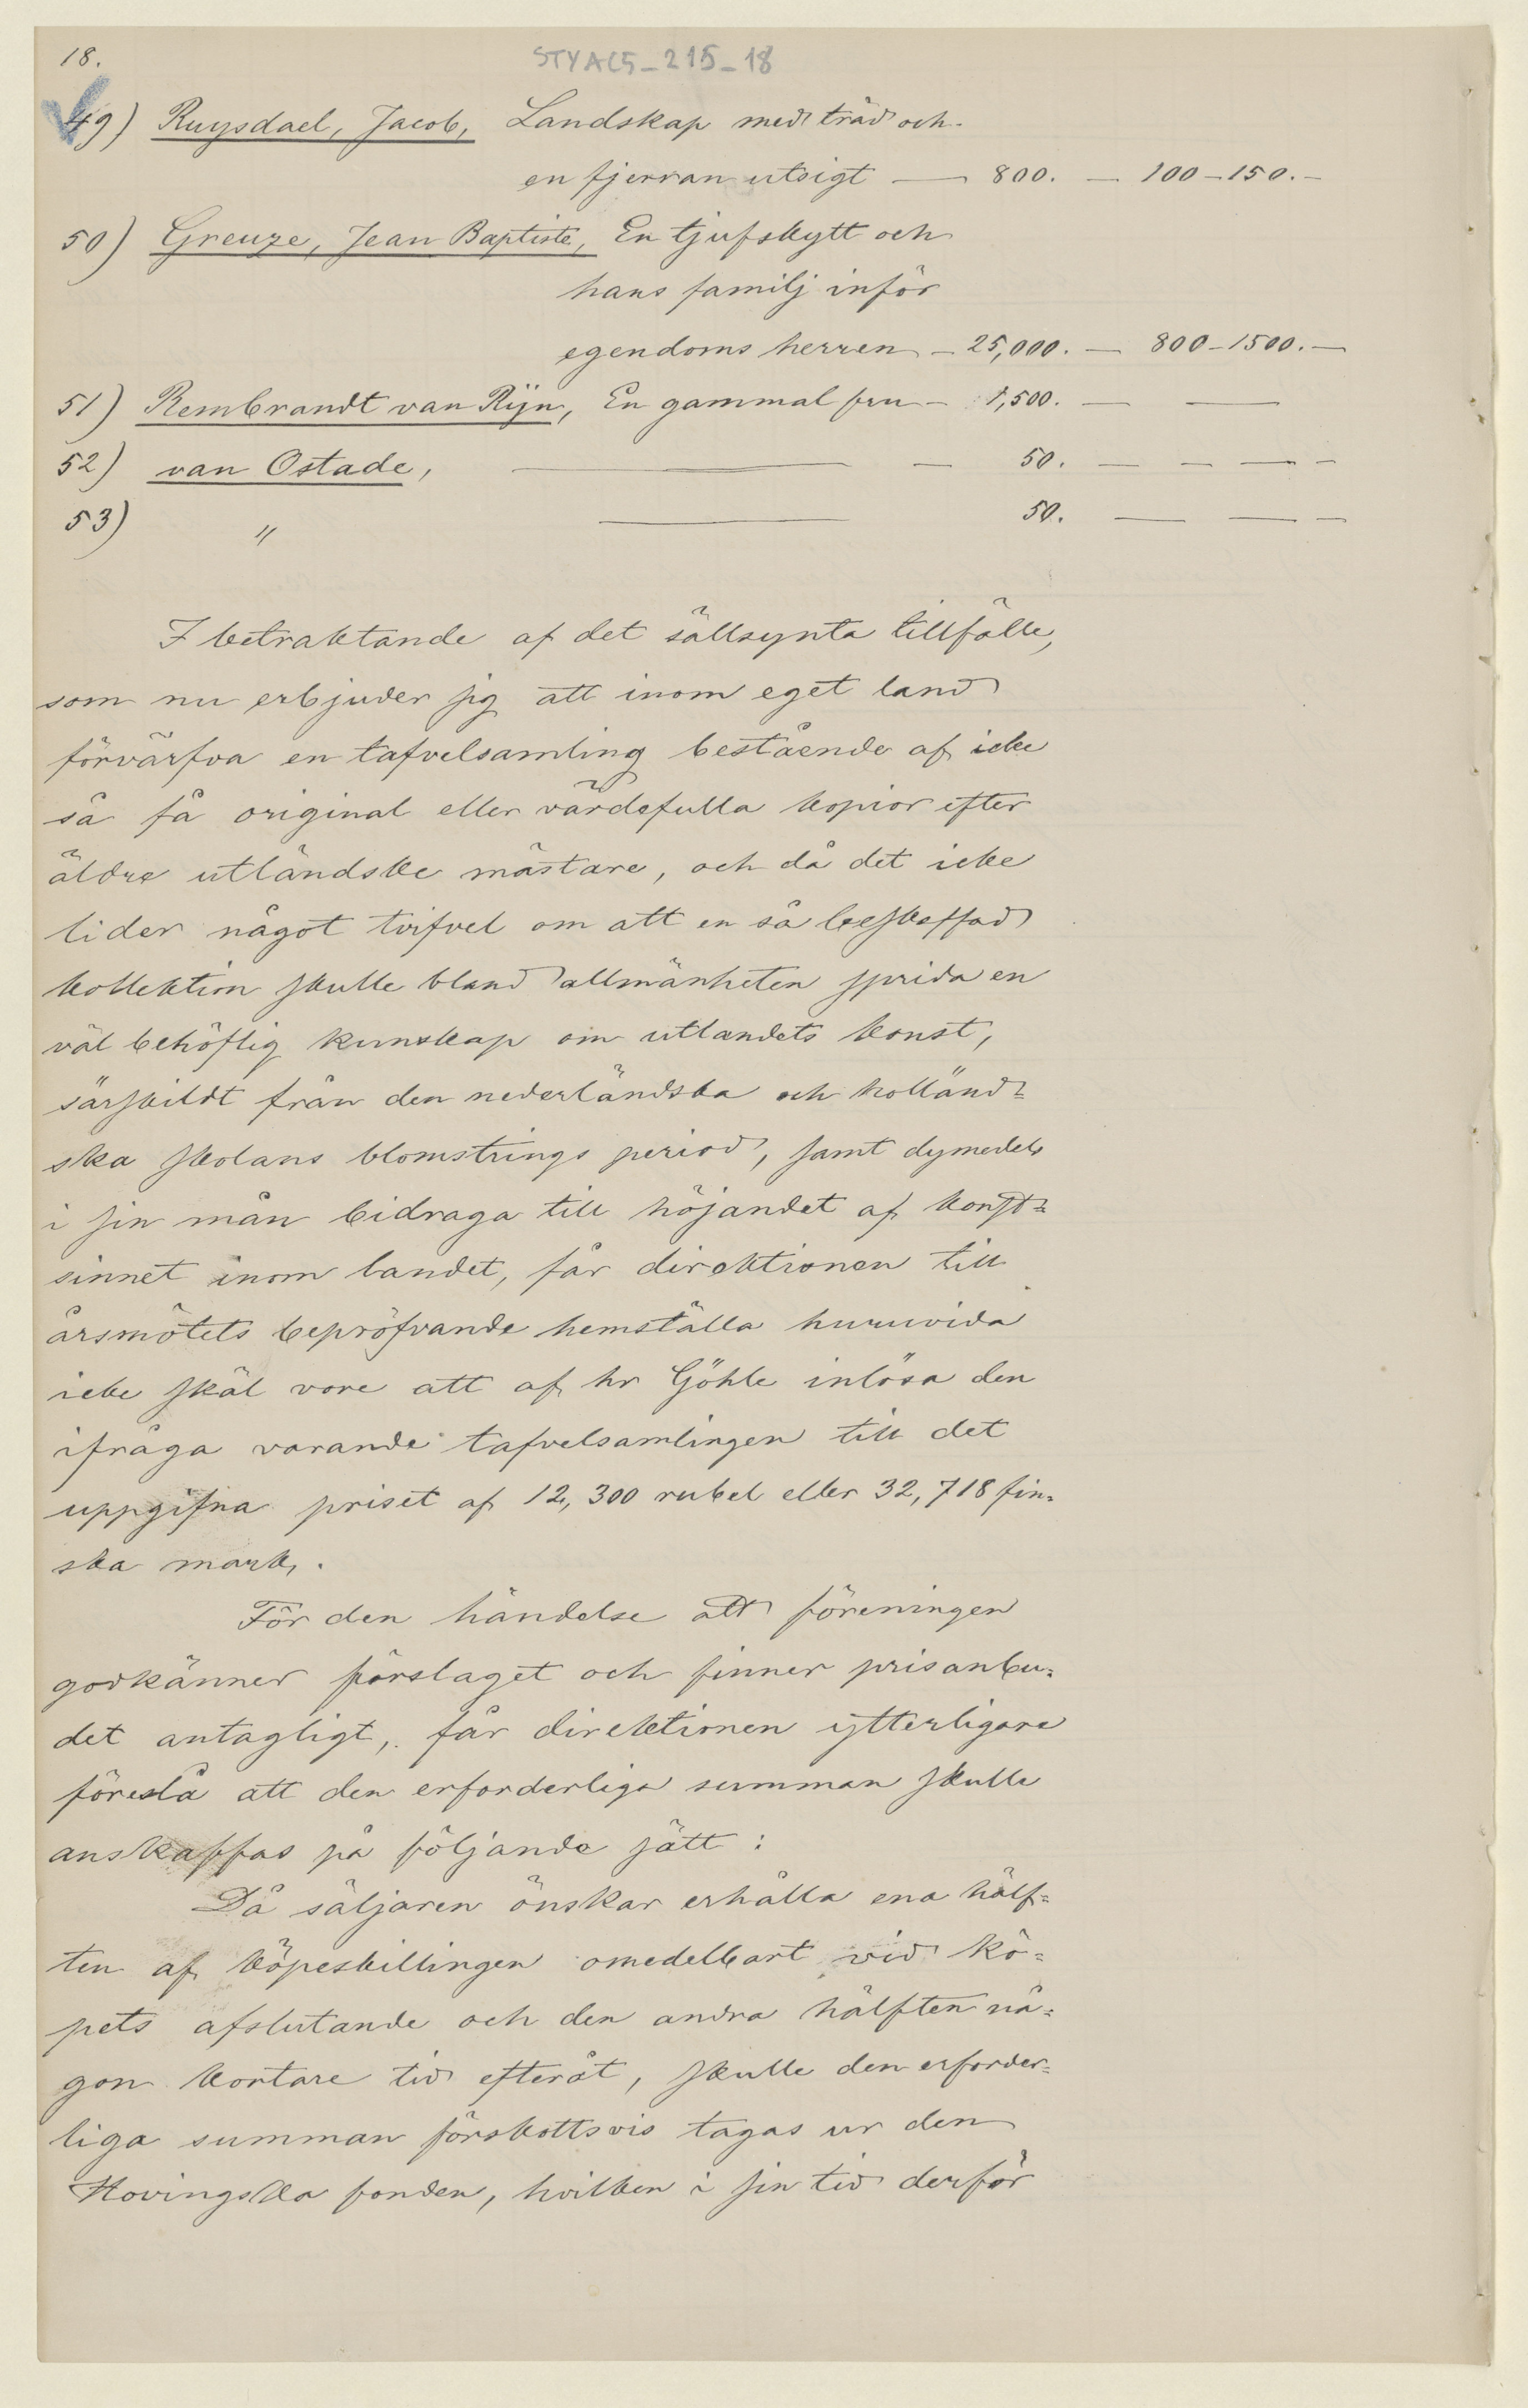 18.
STYAC5_215_18
49) Ruysdael, Jacob, Landskap med träd och
en fjerran utsigt — 800. — 100–150. –
50) Greuze, Jean Baptiste, En tjufskytt och
hans familj inför
egendoms herren – 25,000. — 800–1500. —
51) Rembrandt van Rijn, En gammal fru – 1,500. — —
52) van Ostade, — – 50. — – — –
53) " — 50. — — –
I betraktande af det sällsynta tillfälle,
som nu erbjuder sig att inom eget land
förvärfva en tafvelsamling bestående af icke
så få original eller värdefulla kopior efter
äldre utländske mästare, och då det icke
lider något tvifvel om att en så beskaffad
kollektion skulle bland allmänheten sprida en
väl behöflig kunskap om utlandets konst,
särskildt från den nederländska och holländ=
ska skolans blomstrings period, samt dymedels
i sin mån bidraga till höjandet af konst=
sinnet inom landet, får direktionen till
årsmötets bepröfvande hemställa huruvida
icke skäl vore att af hr Göhle inlösa den
ifråga varande tafvelsamlingen till det
uppgifna priset af 12,300 rubel eller 32,718 fin=
ska mark.
För den händelse att föreningen
godkänner förslaget och finner prisanbu=
det antagligt, får direktionen ytterligare
föreslå att den erforderliga summan skulle
anskaffas på följande sätt:
Då säljaren önskar erhålla ena hälf=
ten af köpeskillingen omedelbart vid kö=
pets afslutande och den andra hälften nå=
gon kortare tid efteråt, skulle den erforder=
liga summan förskottsvis tagas ur den
Hovingska fonden, hvilken i sin tid derför